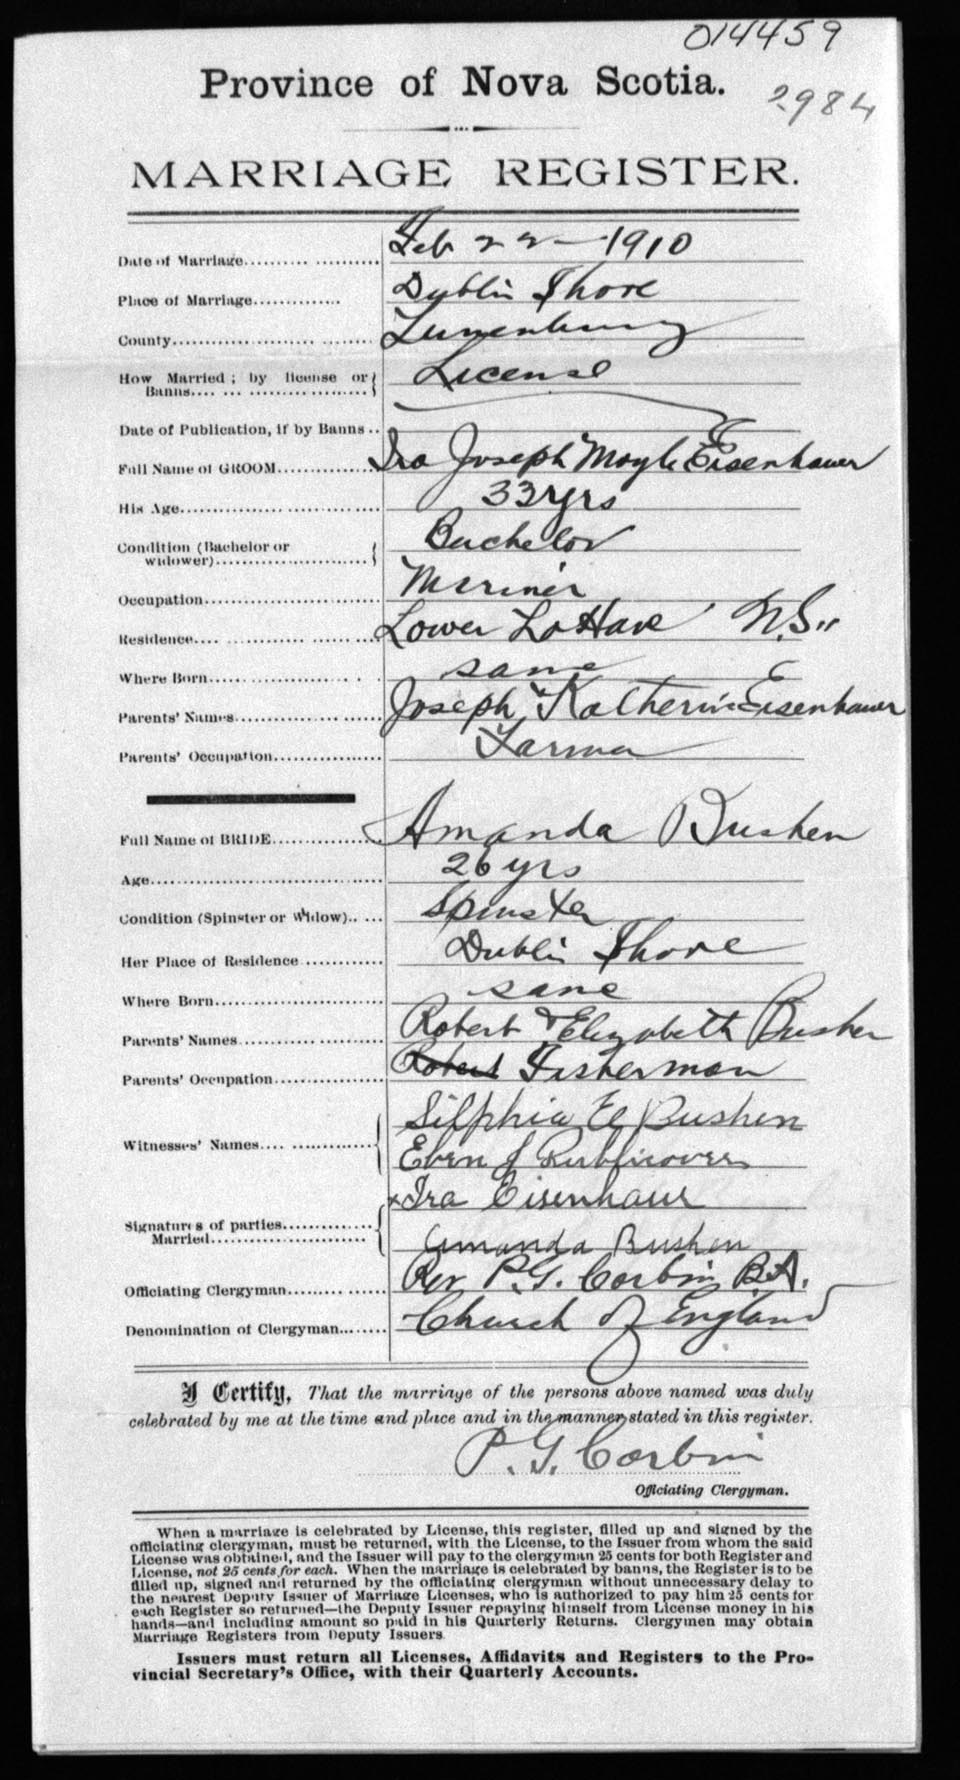 014459
Province of Nova Scotia.
2984
MARRIAGE REGISTER.
Date of Marriage.................... Feb 22 — 1910
Place of Marriage............. Dublin Shore
County.................................. Lunenburg
How Married ; by license or
Banns.... ... .................... License
Date of Publication, if by Banns ..
Full Name of GROOM............... Ira Joseph Moyle Eisenhauer
His Age................................. 33 yrs
Condition (Bachelor or
widower)......................... Bachelor
Occupation............................. Mariner
Residence.... .......... ............ Lower LaHave N.S.
Where Born............................. same
Parents' Names....................... Joseph & Katherine Eisenhauer
Parents' Occupation................. Farmer
Full Name of BRIDE................. Amanda Bushen
Age....................................... 26 yrs
Condition (Spinster or Widow).. .... Spinster
Her Place of Residence ............ Dublin Shore
Where Born............................. same
Parents' Names....................... Robert & Elizabeth Bushen
Parents' Occupation................. Robert Fisherman
Silphia E Bushen
Witnesses' Names.... ...............
Eben J Publicover
x Ira Eisenhaur
Signatures of parties...............
Married..........................
Amanda Bushen
Officiating Clergyman......... ...... Rev P.G. Corbin B.A.
Denomination of Clergyman......... Church of England
I Certify, That the marriage of the persons above named was duly
celebrated by me at the time and place and in the manner stated in this register.
P. G. Corbin
Officiating Clergyman.
When a marriage is celebrated by License, this register, filled up and signed by the
officiating clergyman, must be returned, with the License, to the Issuer from whom the said
License was obtained, and the Issuer will pay to the clergyman 25 cents for both Register and
License, not 25 cents for each. When the marriage is celebrated by banns, the Register is to be
filled up, signed and returned by the officiating clergyman without unnecessary delay to
the nearest Deputy Issuer of Marriage Licenses, who is authorized to pay him 25 cents for
each Register so returned—the Deputy Issuer repaying himself from License money in his
hands—and including amount so paid in his Quarterly Returns. Clergymen may obtain
Marriage Registers from Deputy Issuers.
Issuers must return all Licenses, Affidavits and Registers to the Pro-
vincial Secretary's Office, with their Quarterly Accounts.